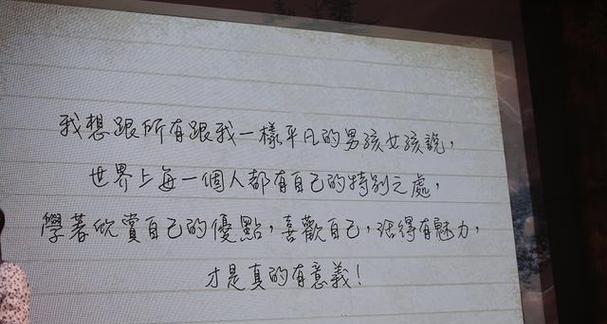 我想跟所有跟我一樣平凡的男孩女孩說，
世界上每一個人都有自己的特別之處，
學著欣賞自己的優點，喜歡自己，活得有魅力，
才是真的有意義！